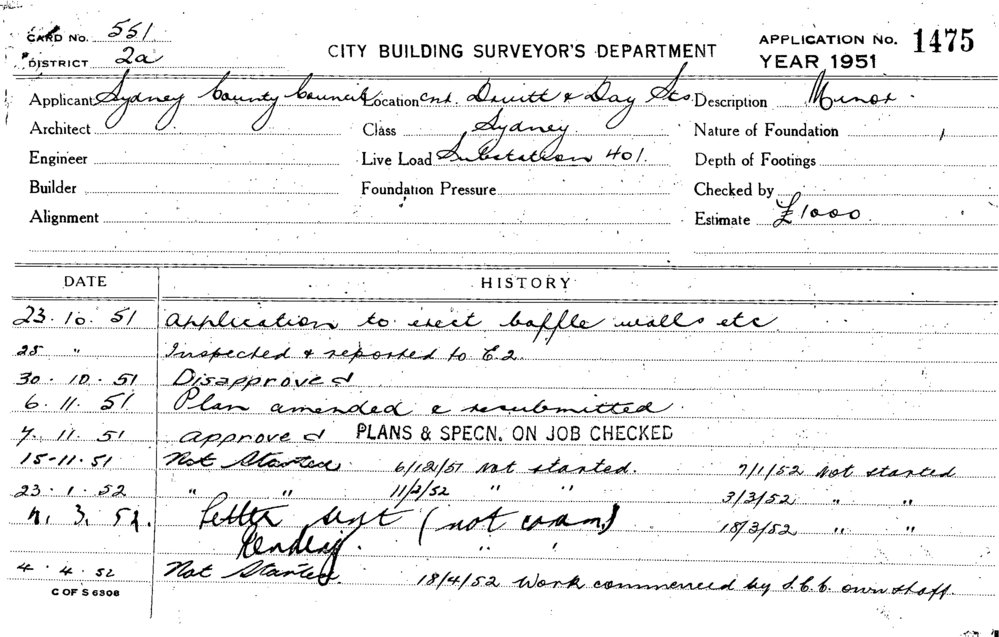 CARD NO. 551
DISTRICT 2a
CITY BUILDING SURVEYOR'S DEPARTMENT
APPLICATION NO. 1475
YEAR 1951
Applicant Sydney County Council Location cnr. Druitt & Day Sts. Description Minor
Architect Class Sydney Nature of Foundation
Engineer Live Load Substation 401. Depth of Footings
Builder Foundation Pressure Checked by
Alignment Estimate £1000
DATE HISTORY
23. 10. 51 Application to erect baffle walls etc
25 " Inspected & reported to E.2.
30. 10. 51 Disapproved
6. 11. 51 Plan amended & resubmitted
7. 11. 51 approved PLANS & SPECN. ON JOB CHECKED
15-11. 51 Not Started. 6/12/51 Not started. 7/1/52 Not started
23. 1. 52 " " 11/2/52 " " 3/3/52 " "
3. 52. Letter sent (not comm) 18/3/52 " "
Pending. " "
4. 4. 52 Not Started 18/4/52 Work commenced by S.C.C. own staff.
C OF S 6308